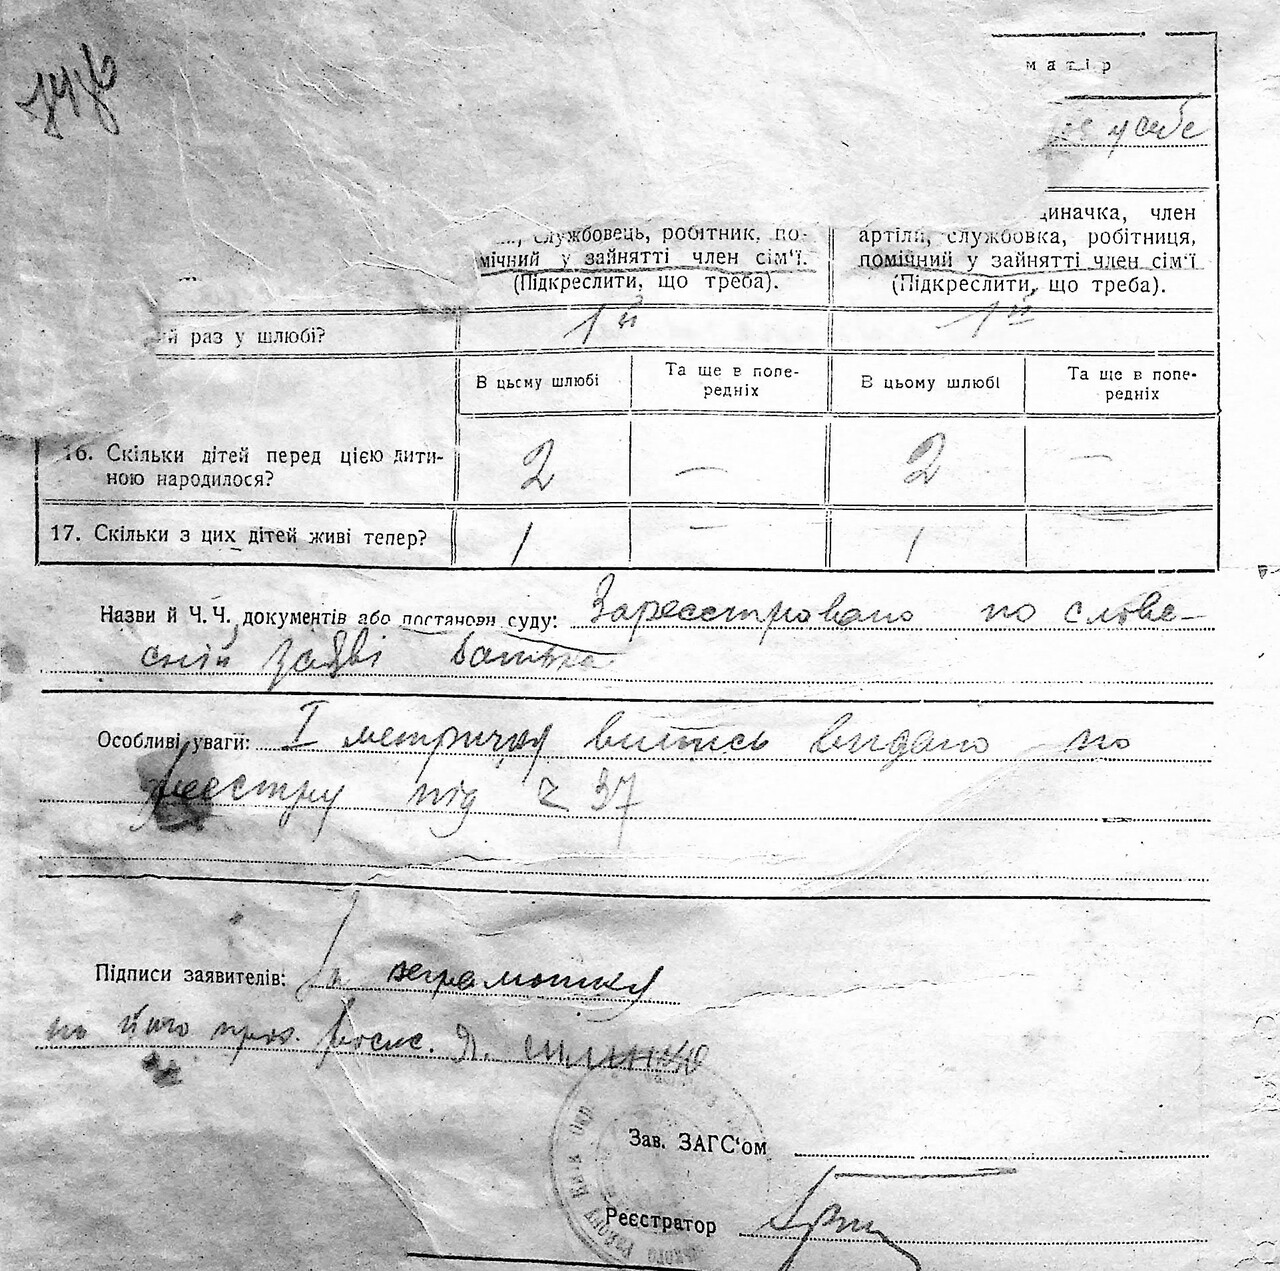 матір
у себе
службовець, робітник, по-
мічний у зайнятті член сім'ї.
(Підкреслити, що треба).
диначка, член
артілі, службовка, робітниця,
помічний у зайнятті член сім'ї
(Підкреслити, що треба).
раз у шлюбі?
1й
1й
В цьому шлюбі
Та ще в попе-
редніх
В цьому шлюбі
Та ще в попе-
редніх
16. Скільки дітей перед цією дити-
ною народилося?
2
—
2
—
17. Скільки з цих дітей живі тепер?
1
—
1
Назви й Ч. Ч. документів або постанови суду: Зареєстровано по слове-
сній заяві батька
Особливі уваги: I метричну випись видано по
реєстру під ч 37
Підписи заявителів: За неграмотн
по його прох. роспс. Я.
Зав. ЗАГС'ом
Реєстратор